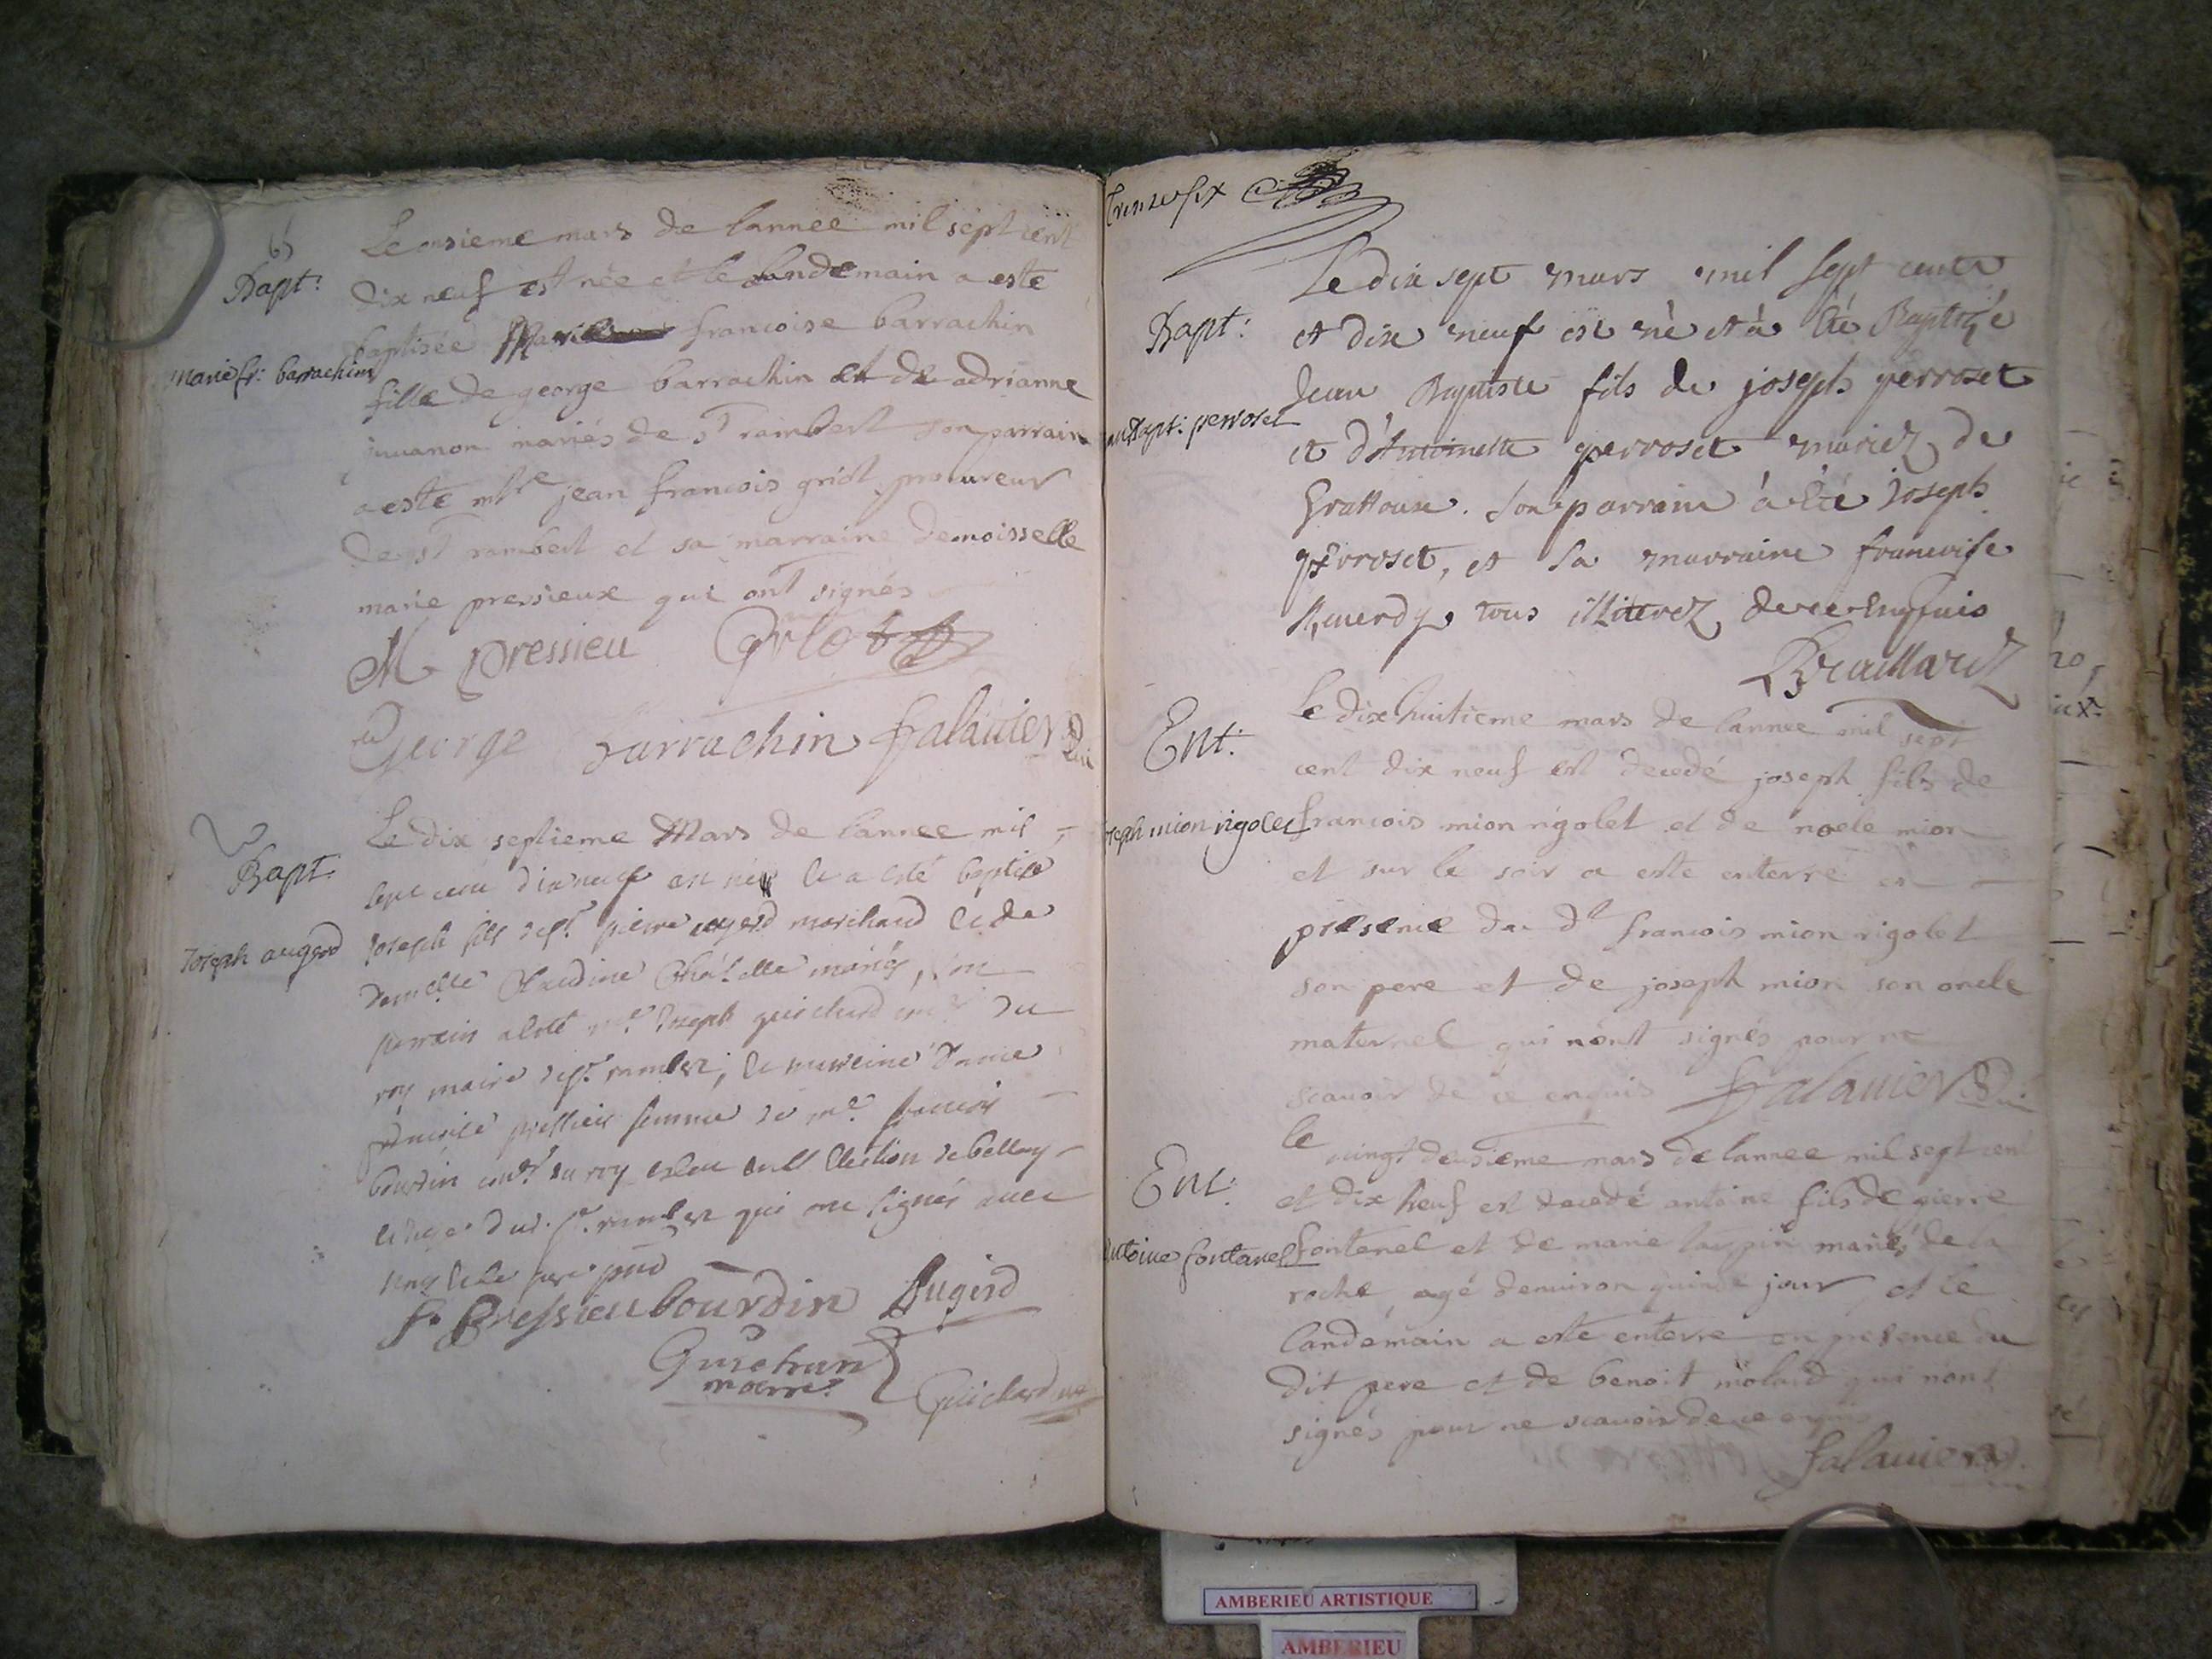 Bapt:
marie fr: barrachin
Le onsieme mars de lannee mil sept cent
dix neuf est nèe et le landemain a este
baptisée francoise barrachin
fille de george barrachin et de adrianne
juuanon mariés de st rambert son parrain
a este mtre jean francois griot procureur
de st rambert et sa marraine demoisselle
marie pressieux qui ont signés
M pressieu Griot
George barrachin falauier
Bapt.
Joseph augerd
Le dix septieme Mars de l'annee mil
sept cent dixneuf est né et a esté baptisé
Joseph fils de sr. pierre augerd marchand et de
demelle Claudine mariés, son
parrain a esté mre Joseph guichard du
roy maire de st. rambert, la marreine dame
pressieu femme de mre francois
bourdin du roy esleu en l'election de belley
et juge dud. st. rambert qui ont signés avec
pressieu bourdin Augerd
Guichard
Trente six
Bapt:
Bapt: perroset
Le dix sept mars mil sept cents
et dix neuf est nè et à été Baptizé
Jean Baptiste fils de joseph perroset
et d'Antoinette perroset mariez de
Grattoux. Son parrain à été Joseph
perroset, et sa marraine francoise
tous illiterez de ce enquis
Braillard
Ent:
joseph mion rigolet
Le dix huitieme mars de lannee mil sept
cent dix neuf est decedé joseph fils de
francois mion rigolet et de noele mion
et sur le soir a este enterré en
presence du dt francois mion rigolet
son pere et de joseph mion son oncle
maternel qui nont signés pour ne
scauoir de ce enquis falauier
Ent:
antoine fontanel
le uingt deusieme mars de lannee mil sept cent
et dix neuf est decedé antoine fils de pierre
fontenel et de marie mariés de la
roche agé denuiron quinse jour et le
landemain a este enterre en presence du
dit pere et de benoit molard qui nont
signés pour ne scauoir de ce enquis
falauier
AMBERIEU ARTISTIQUE
AMBERIEU